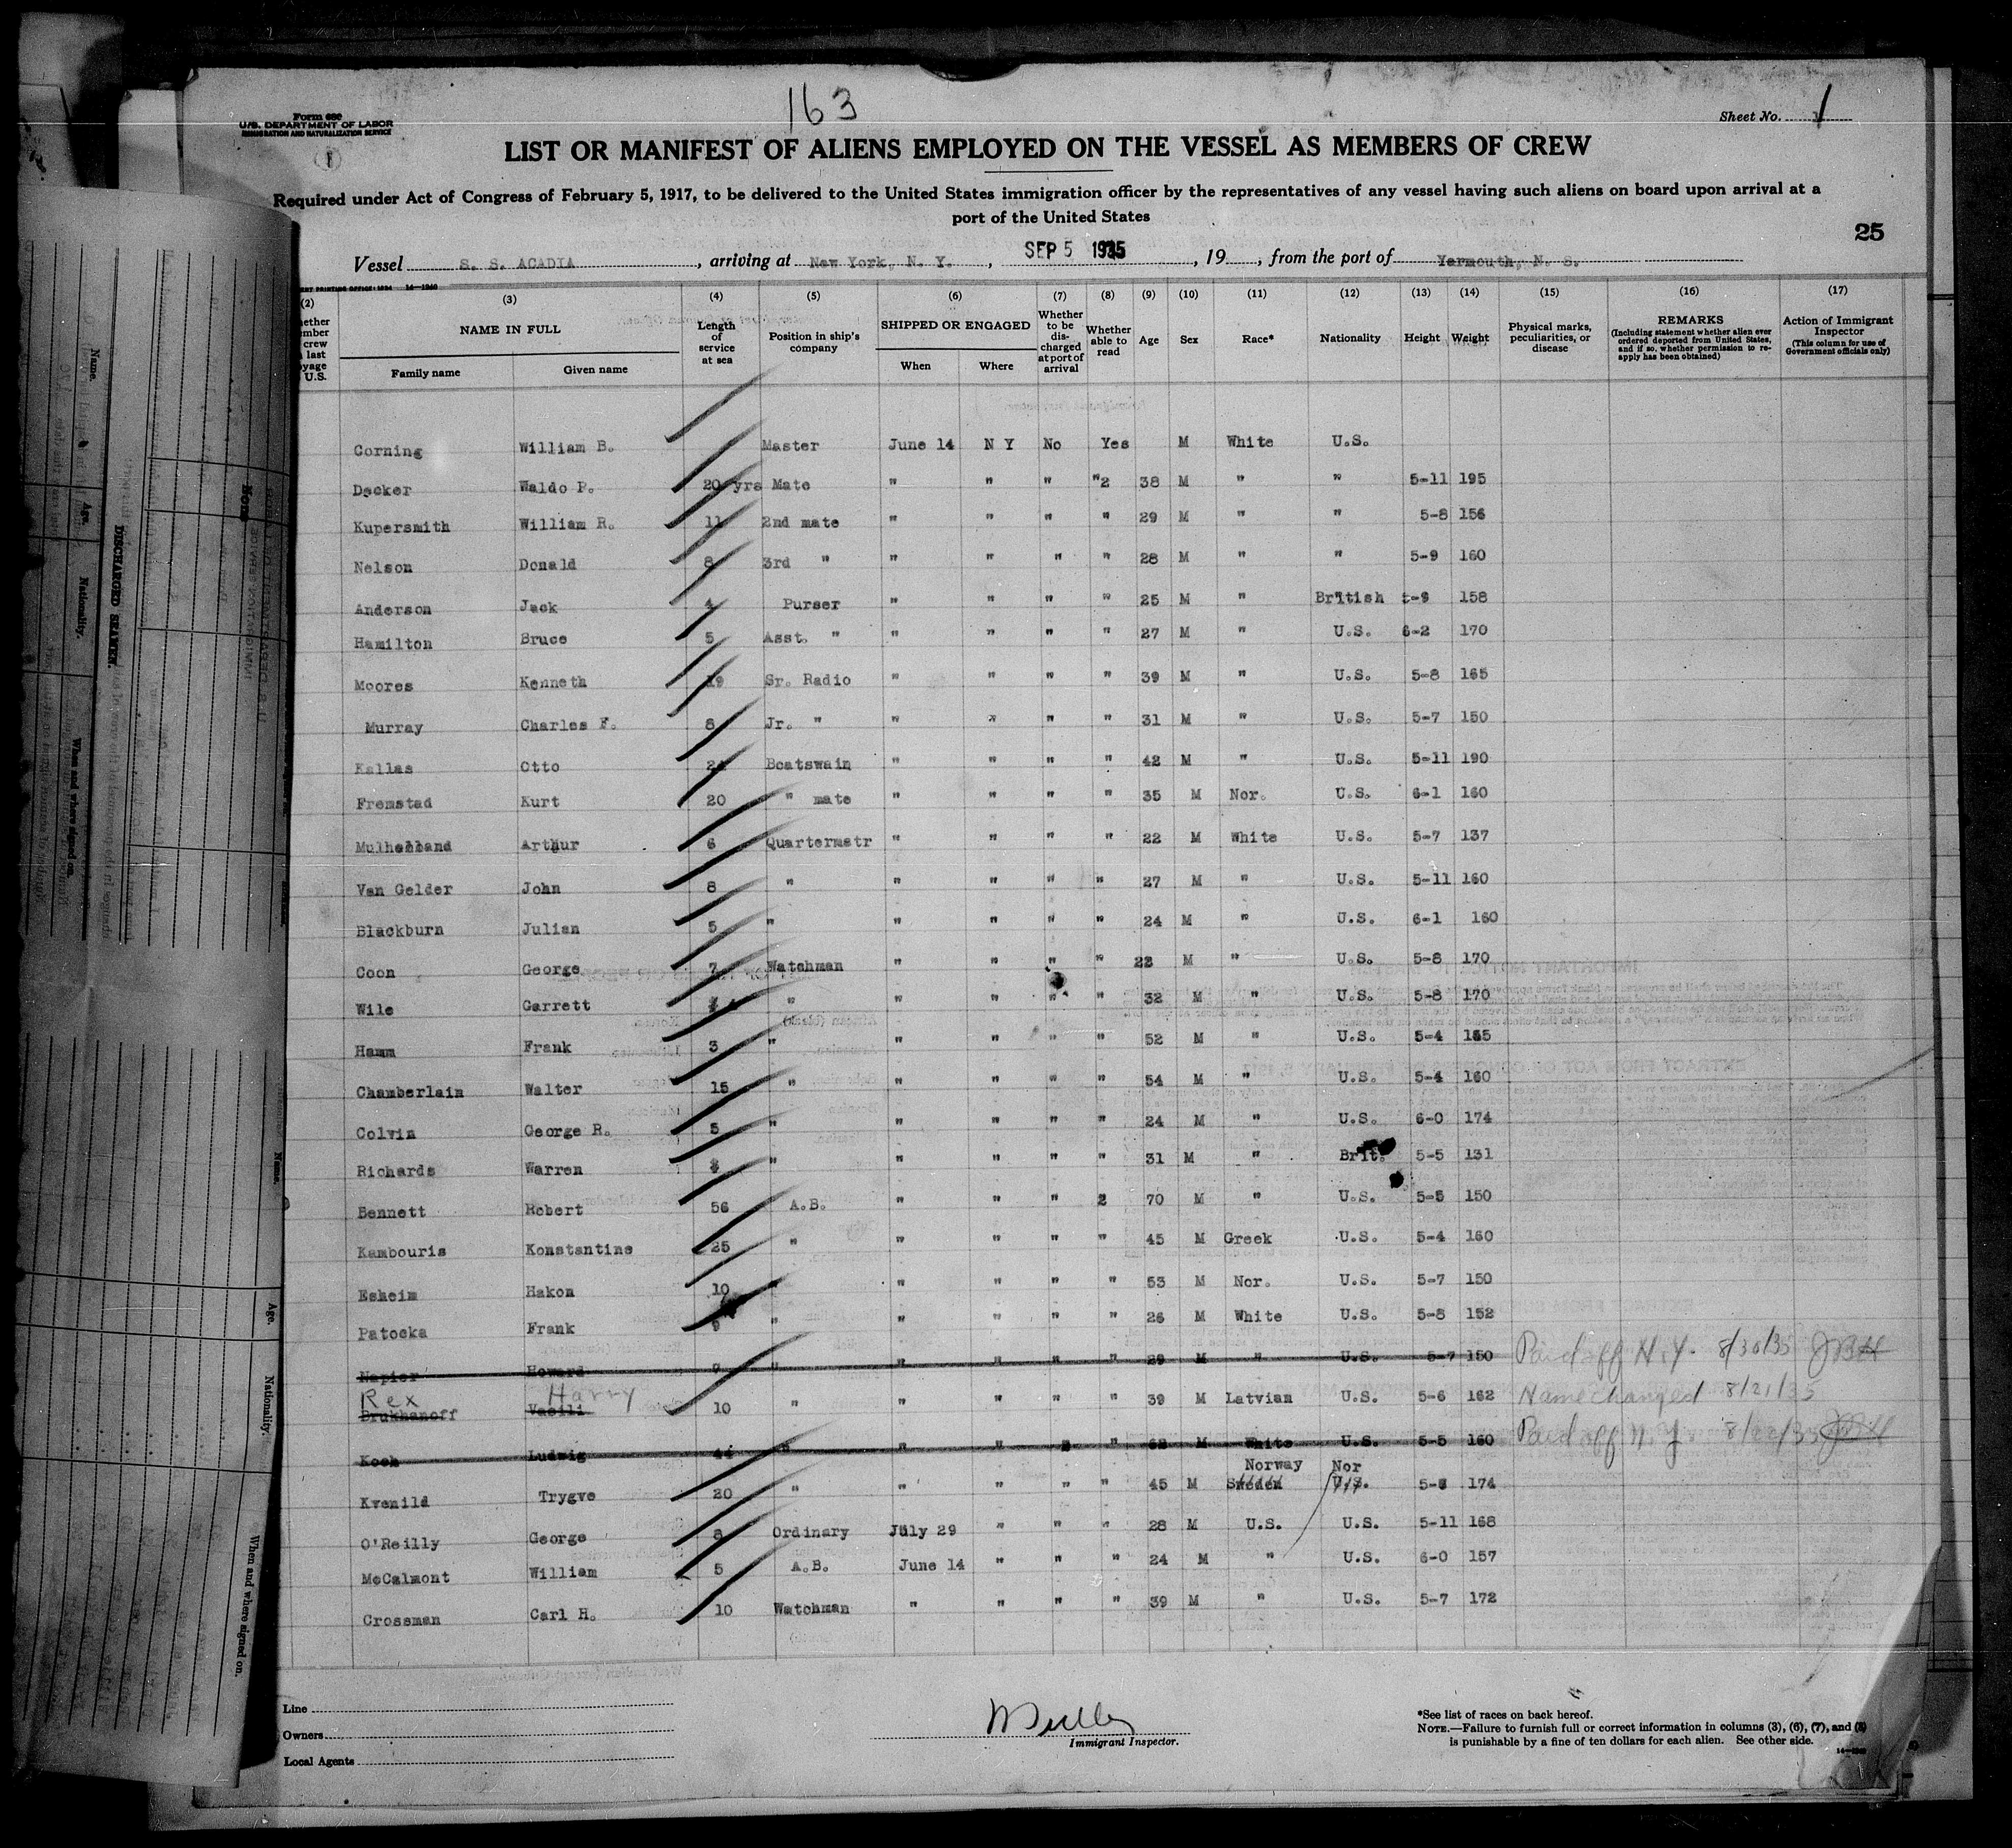 163
Form 680
U.S. DEPARTMENT OF LABOR
IMMIGRATION AND NATURALIZATION SERVICE
Sheet No. 1
LIST OR MANIFEST OF ALIENS EMPLOYED ON THE VESSEL AS MEMBERS OF CREW
Required under Act of Congress of February 5, 1917, to be delivered to the United States immigration officer by the representatives of any vessel having such aliens on board upon arrival at a
port of the United States
25
Vessel S. S. ACADIA, arriving at New York, N. Y., SEP 5 1935, 19, from the port of Yarmouth, N. S.
(2) (3) (4) (5) (6) (7) (8) (9) (10) (11) (12) (13) (14) (15) (16) (17)
NAME IN FULL
Family name Given name
Length of service at sea
Position in ship's company
SHIPPED OR ENGAGED
When Where
Whether to be discharged at port of arrival
Whether able to read
Age Sex Race* Nationality Height Weight
Physical marks, peculiarities, or disease
REMARKS
(Including statement whether alien ever ordered deported from United States, and if so, whether permission to reapply has been obtained)
Action of Immigrant Inspector
(This column for use of Government officials only)
Corning William B. Master June 14 N Y No Yes M White U.S.
Decker Waldo P. 20 yrs Mate " " " "2 38 M " " 5-11 195
Kupersmith William R. 11 2nd mate " " " " 29 M " " 5-8 156
Nelson Donald 8 3rd " " " " " 28 M " " 5-9 160
Anderson Jack 4 Purser " " " " 25 M " British 5-9 158
Hamilton Bruce 5 Asst. " " " " " 27 M " U.S. 6-2 170
Moores Kenneth 19 Sr. Radio " " " " 39 M " U.S. 5-8 165
Murray Charles F. 8 Jr. " " " " " 31 M " U.S. 5-7 150
Kallas Otto 24 Boatswain " " " " 42 M " U.S. 5-11 190
Fremstad Kurt 20 " mate " " " " 35 M Nor. U.S. 6-1 160
Arthur 6 Quartermatr " " " " 22 M White U.S. 5-7 137
Van Gelder John 8 " " " " " 27 M " U.S. 5-11 160
Blackburn Julian 5 " " " " " 24 M " U.S. 6-1 160
Coon George 7 Watchman " " " " 23 M " U.S. 5-8 170
Wile Garrett " " " " " 32 M " U.S. 5-8 170
Hamm Frank 3 " " " " " 52 M " U.S. 5-4
Chamberlain Walter 15 " " " " " 54 M " U.S. 5-4 160
Colvin George R. 5 " " " " " 24 M " U.S. 6-0 174
Richards Warren " " " " " 31 M " Brit. 5-5 131
Bennett Robert 56 A.B. " " " 2 70 M " U.S. 5-5 150
Kambouris Konstantine 25 " " " " " 45 M Greek U.S. 5-4 160
Esheim Hakon 10 " " " " " 53 M Nor. U.S. 5-7 150
Patocka Frank 9 " " " " " 26 M White U.S. 5-8 152
Napier Howard 7 " " " " " 29 M " U.S. 5-7 150 Paid off N.Y. 8/30/35
Rex Harry
Brukhanoff Vasili 10 " " " " " 39 M Latvian U.S. 5-6 162 Name changed 8/21/35
Koch Ludwig 44 " " " " 62 M White U.S. 5-5 160 Paid off N.Y. 8/22/35
Norway Nor
Kvenild Trygve 20 " " " " " 45 M Sweden U.S. 174
O'Reilly George 8 Ordinary July 29 " " " 28 M U.S. U.S. 5-11 168
McCalmont William 5 A.B. June 14 " " " 24 M " U.S. 6-0 157
Crossman Carl H. 10 Watchman " " " " 39 M " U.S. 5-7 172
Line
Owners
Local Agents
Immigrant Inspector.
*See list of races on back hereof.
NOTE.—Failure to furnish full or correct information in columns (3), (6), (7), and (8)
is punishable by a fine of ten dollars for each alien. See other side.
DISCHARGED SEAMEN
Name. Age. Nationality. When and where signed on.
Name. Age. Nationality. When and where signed on.